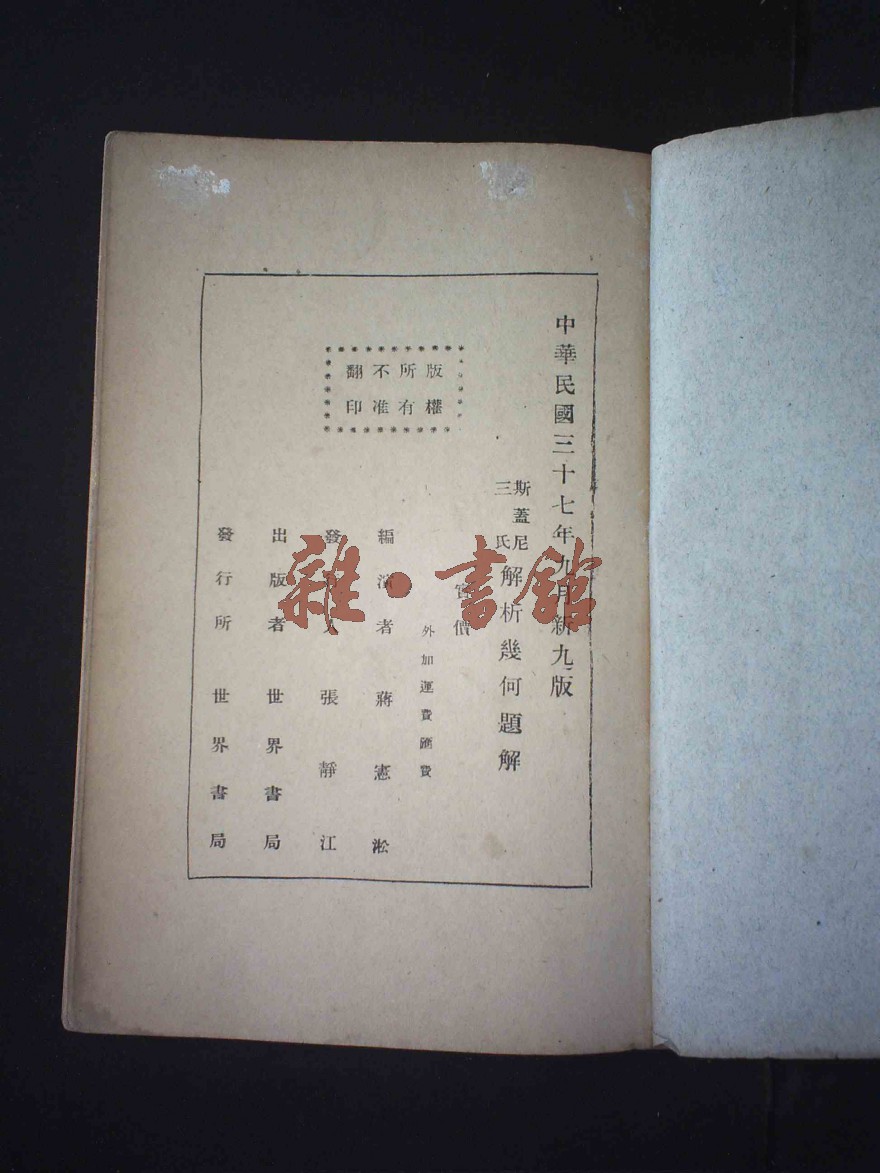 中華民國三十七年九月新九版
斯蓋尼
三氏
解析幾何題解
實價
外加運費匯費
版權
所有
不准
翻印
編演者 蔣憲淞
發行人 張靜江
出版者 世界書局
發行所 世界書局
雜·書館